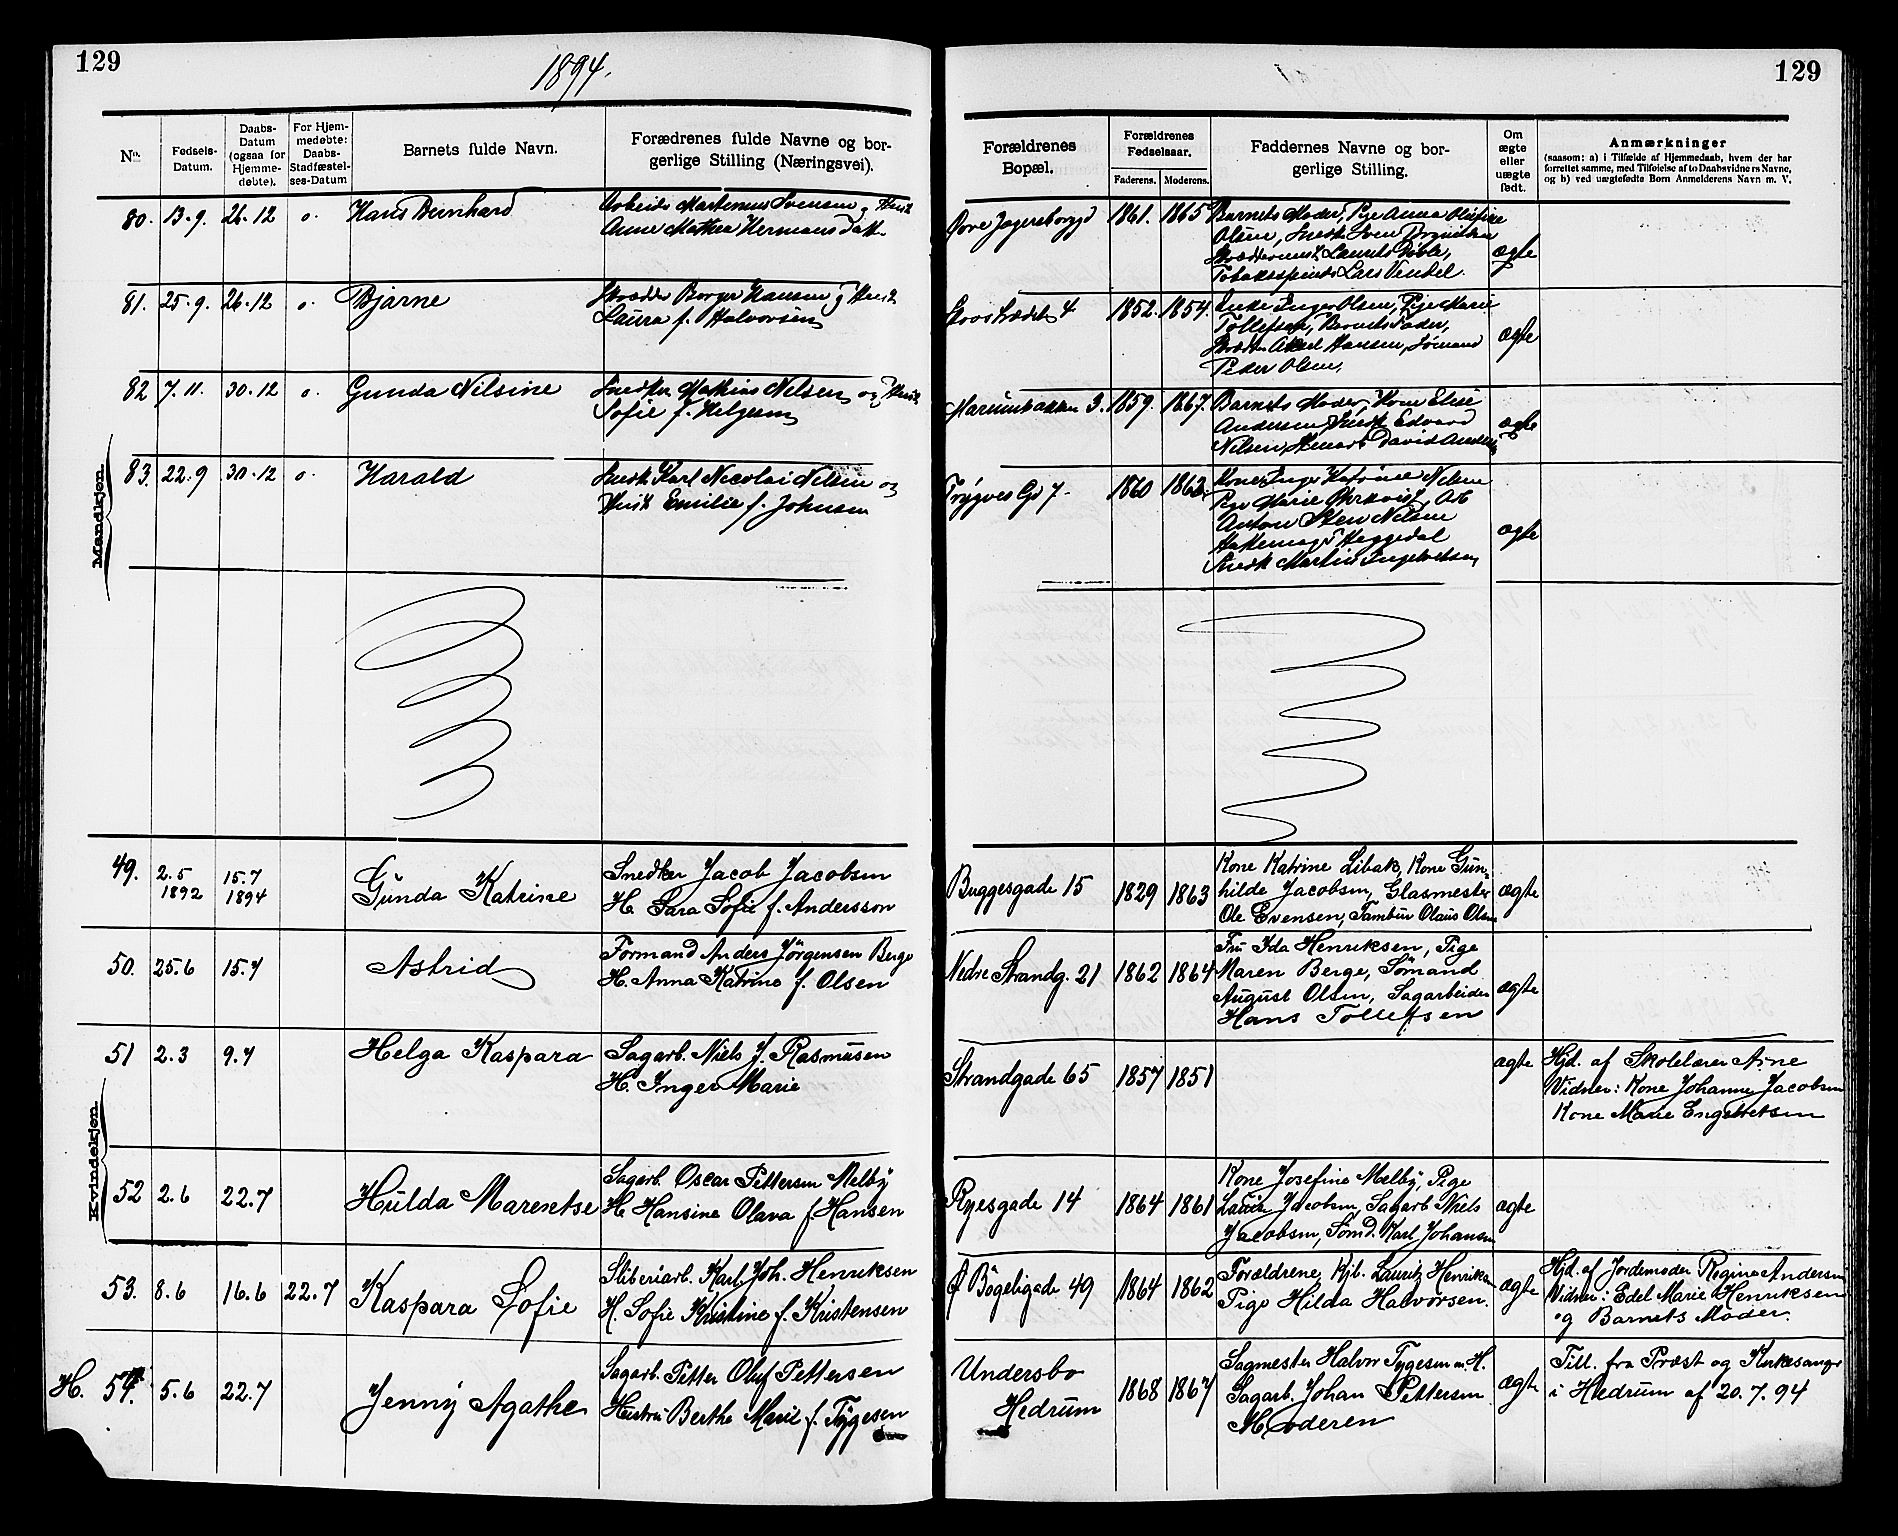 129
1894.
129
No.
Fødsels-
Datum.
Daabs-
Datum
(ogsaa for
Hjemme-
døbte).
For Hjem-
medøbte:
Daabs-
Stadfæstel-
ses-Datum
Barnets fulde Navn.
Forædrenes fulde Navne og bor-
gerlige Stilling (Næringsvei).
Forældrenes
Bopæl.
Forældrenes
Fødselsaar.
Faderens. Moderens.
Faddernes Navne og bor-
gerlige Stilling.
Om
ægte
eller
uægte
født.
Anmærkninger
(saasom: a) i Tilfælde af Hjemmedaab, hvem der har
forrettet samme, med Tilføielse af to Daabsvidners Navne,
og b) ved uægtefødte Børn Anmelderens Navn m. V.
Mandkjøn.
80. 13.9. 26.12 o. Hans Bernhard
Arbeider Martenius Svensen og Hust
Anne Mathea Hermansdatt
1861. 1865
Barnets Moder, Pige Anna Olefine
Olsen, Snedk Sven
Laurits
Lars Vendel.
ægte
81. 25.9. 26.12 o. Bjarne
Skrædder Borger Hansen og Hust
Laura f. Halvorsen
4 1852. 1854.
Enke Inger Olsen, Pige
Tollefsen, Barnets Fader,
Skrædder Hansen, Sømand
Peder Olsen.
ægte
82 7.11. 30.12 o. Gunda Nilsine
Snedker Mathias Nilsen og Hust
Sofie f. Helgesen
3. 1859. 1867.
Barnets Moder, Kone Elise
Andersen Snedk Edvard
Nilsen, David
ægte
83. 22.9 30.12 o. Harald
Snedk Karl Nicolai Nilsen og
Hust Emilie f. Johnsen
Trygves Gd 7. 1860 1862.
Kone Inger Katrine Nilsen
Pige Marie Arb
Anton Nilsen
Heggedal
Snedk Martin Ingebretsen
ægte
Kvindekjøn.
49. 2.5
1892
15.7
1894
Gunda Katrine
Snedker Jacob Jacobsen
H. Sara Sofie f. Andersson
Buggesgade 15 1829 1863
Kone Katrine Libak, Kone Gun-
hilde Jacobsen, Glasmester
Ole Evensen, Tambur Olaus Olsen
ægte
50. 25.6 15.7 Astrid
Formand Anders Jörgensen Berge
H. Anna Katrine f. Olsen
Nedre Strandg. 21 1862 1864
Fru Ida Henriksen, Pige
Maren Berge, Sömand
August Olsen, Sagarbeider
Hans Tollefsen
ægte
51 2.3 9.7 Helga Kaspara
Sagarb. Niels J. Rasmusen
H. Inger Marie
Strandgade 65 1857 1851
ægte
Hjd. af Skolelærer Arne
Vidner: Kone Johanne Jacobsen
Kone Marie Engebretsen
52 2.6 22.7 Hulda Marentse
Sagarb. Oscar Pettersen Melby
H. Hansine Olava f. Hansen
Ryesgade 14 1864 1861
Kone Josefine Melby, Pige
Laura Jacobsen, Sagarb. Niels
Jacobsen, Sömd. Karl Johansen
ægte
53. 8.6 16.6 22.7 Kaspara Sofie
Sliberiarb. Karl Joh. Henriksen
H. Sofie Kristine f. Kristensen
Ø Bögeligade 49 1864 1862
Forældrene, Kjb. Lauritz Henriksen
Pige Hilda Halvorsen.
ægte
Hjd. af Jordemoder Regine Andersen
Vidner: Edel Marie Henriksen
og Barnets Moder.
H. 54. 5.6 22.7 Jenny Agathe
Sagarb. Petter Oluf Pettersen
Hustru Berthe Marie f. Tygesen
Undersbo
Hedrum
1868 1867
Sagmester Halvor Tygesen m. H.
Sagarb. Johan Pettersen
Moderen
ægte
Till. fra Præst og Kirkesanger
i Hedrum af 20.7.94